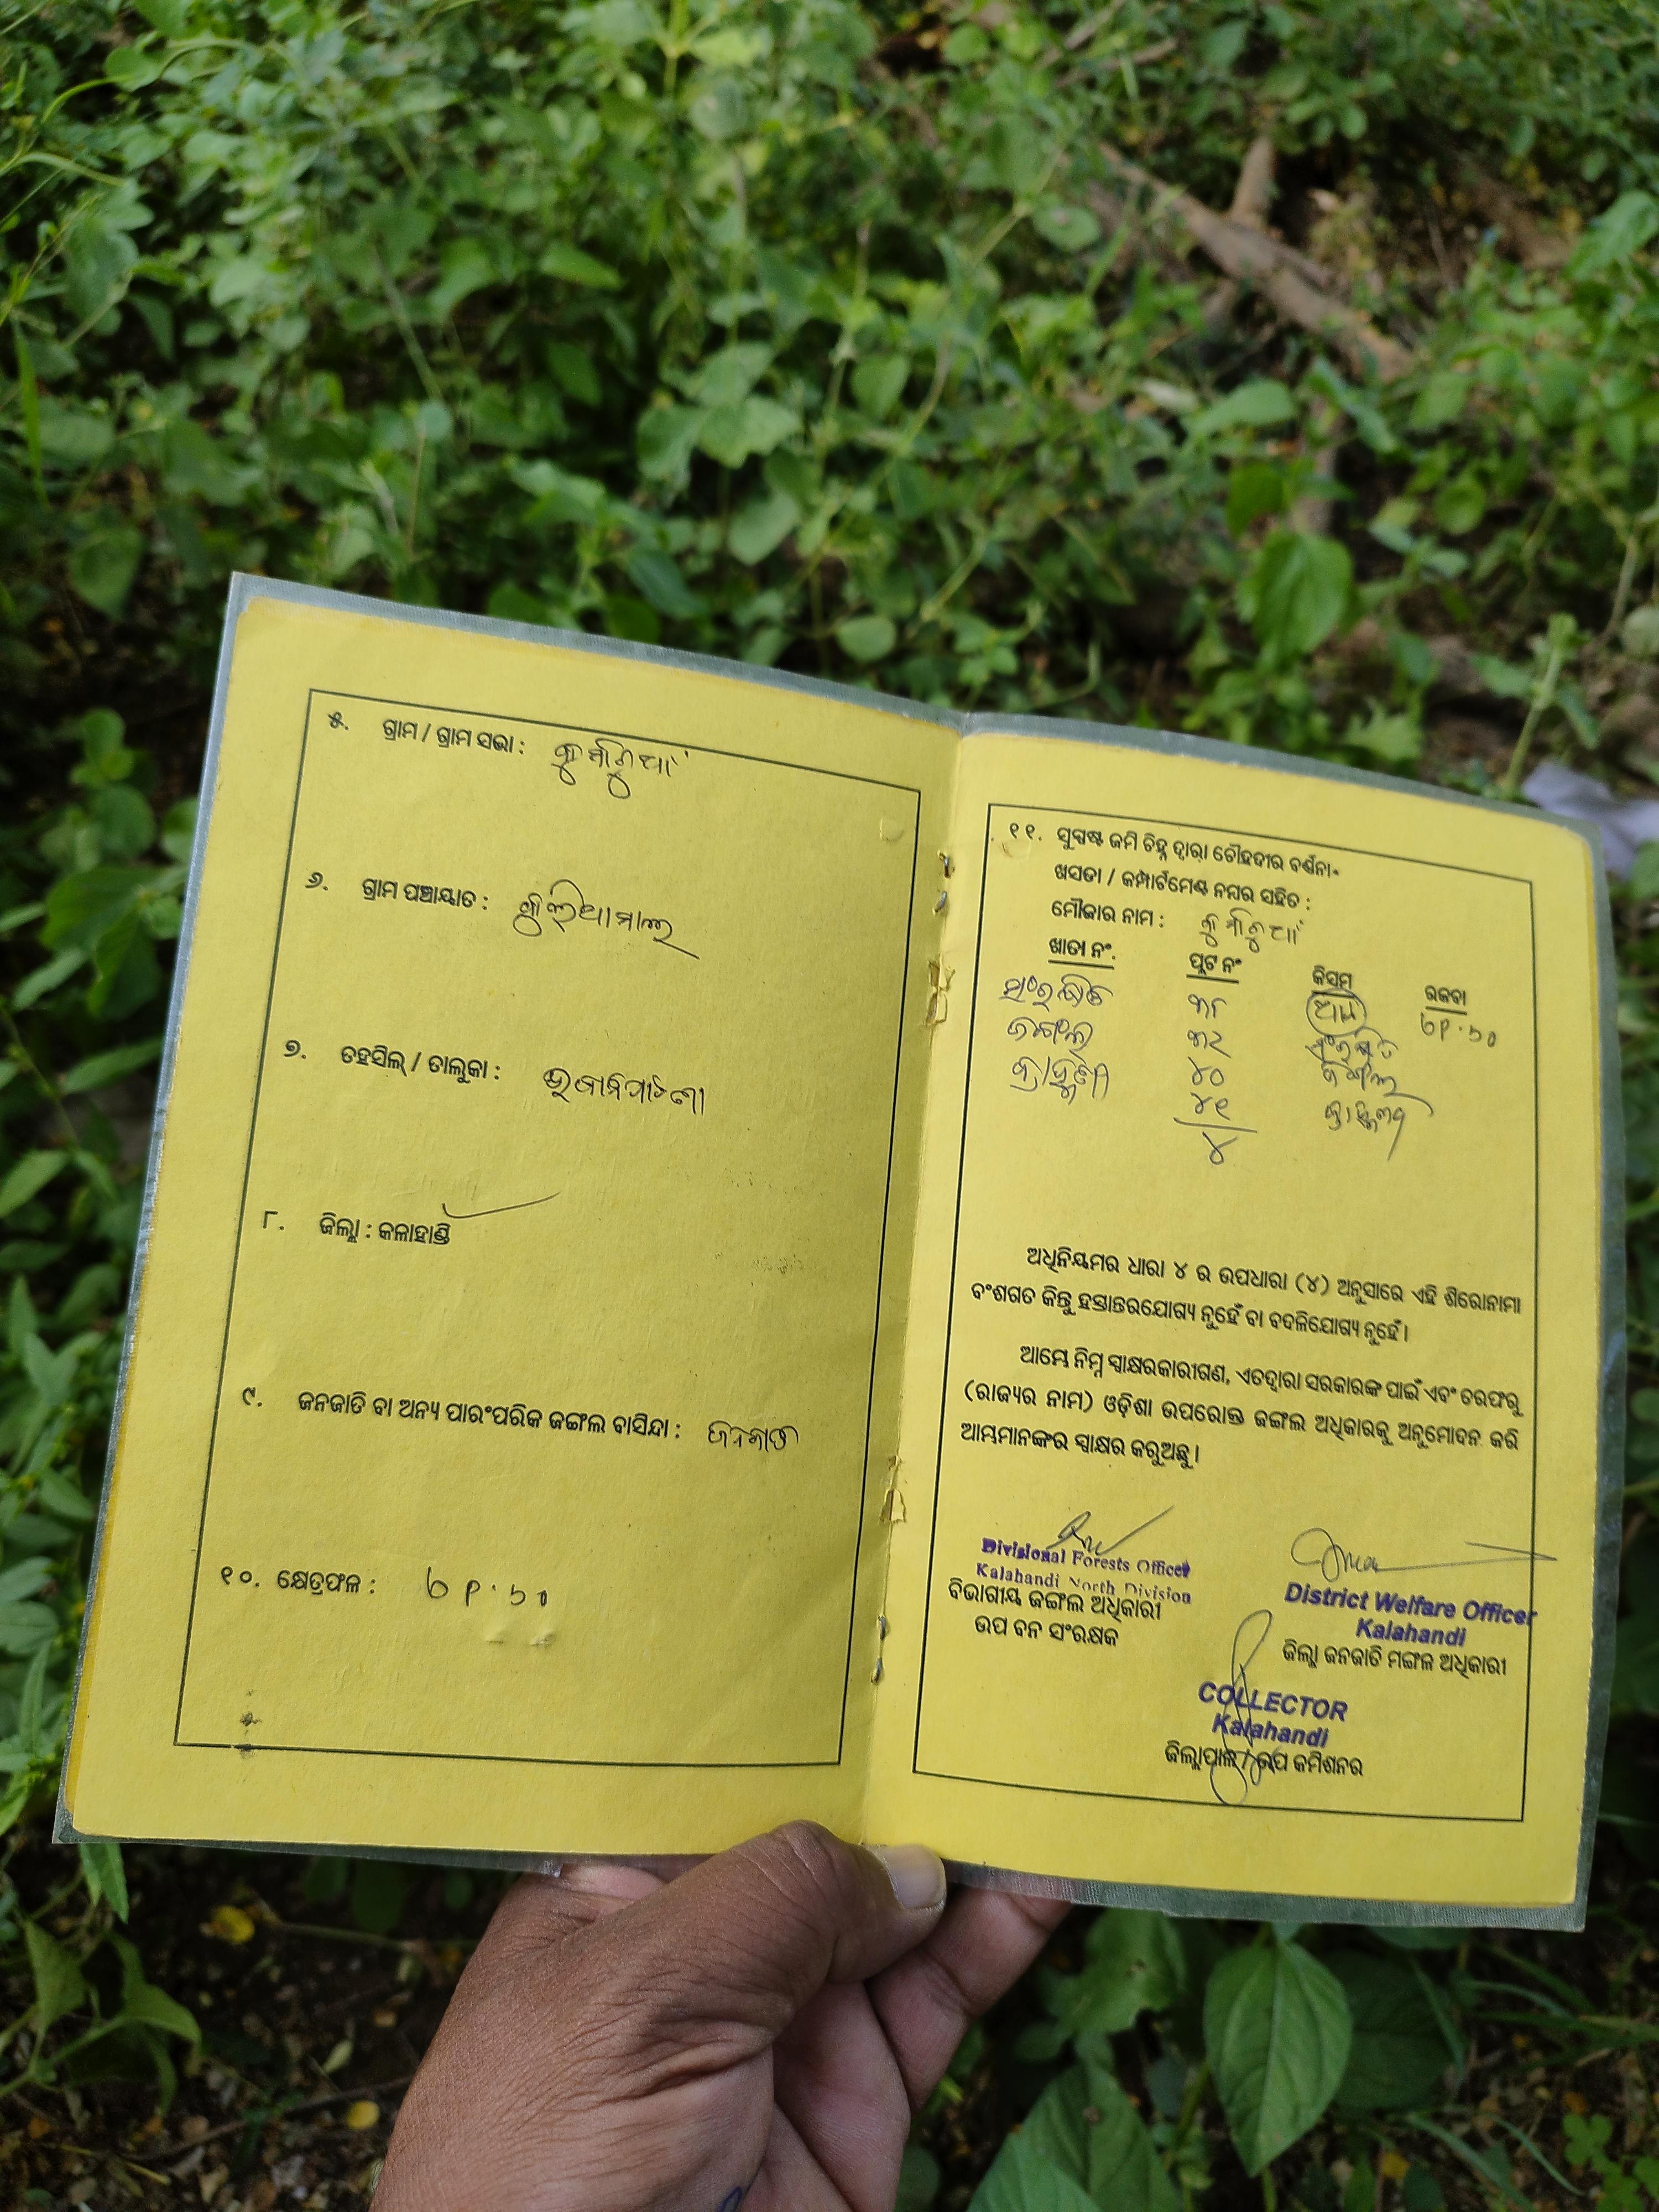 ୫. ଗ୍ରାମ / ଗ୍ରାମ ସଭା :
୬. ଗ୍ରାମ ପଞ୍ଚାୟାତ :
୭. ତହସିଲ୍ / ତାଲୁକା : ଭବାନିପାଟଣା
୮. ଜିଲ୍ଲା : କଳାହାଣ୍ଡି
୯. ଜନଜାତି ବା ଅନ୍ୟ ପାରଂପରିକ ଜଙ୍ଗଲ ବାସିନ୍ଦା : ଜନଜାତି
୧୦. କ୍ଷେତ୍ରଫଳ :
୧୧. ସୁସ୍ପଷ୍ଟ ଜମି ଚିହ୍ନ ଦ୍ୱାରା ଚୌହଦୀର ବର୍ଣ୍ଣନା
ଖସଡା / କମ୍ପାର୍ଟମେଣ୍ଟ ନମ୍ବର ସହିତ :
ମୌଜାର ନାମ :
ଖାତା ନଂ. ପ୍ଲଟ ନଂ କିସମ ରକବା
ସଂରକ୍ଷିତ ୩୮
ଜଙ୍ଗଲ ୩୨ ସଂରକ୍ଷିତ
୪୦ ଜଙ୍ଗଲ
୪୧
୪
ଅଧିନିୟମର ଧାରା ୪ ର ଉପଧାରା (୪) ଅନୁସାରେ ଏହି ଶିରୋନାମା
ବଂଶଗତ କିନ୍ତୁ ହସ୍ତାନ୍ତରଯୋଗ୍ୟ ନୁହେଁ ବା ବଦଳିଯୋଗ୍ୟ ନୁହେଁ।
ଆମ୍ଭେ ନିମ୍ନ ସ୍ୱାକ୍ଷରକାରୀଗଣ, ଏତଦ୍ୱାରା ସରକାରଙ୍କ ପାଇଁ ଏବଂ ତରଫରୁ
(ରାଜ୍ୟର ନାମ) ଓଡ଼ିଶା ଉପରୋକ୍ତ ଜଙ୍ଗଲ ଅଧିକାରକୁ ଅନୁମୋଦନ କରି
ଆମ୍ଭମାନଙ୍କର ସ୍ୱାକ୍ଷର କରୁଅଛୁ।
Divisional Forests Officer
Kalahandi North Division
ବିଭାଗୀୟ ଜଙ୍ଗଲ ଅଧିକାରୀ
ଉପ ବନ ସଂରକ୍ଷକ
District Welfare Officer
Kalahandi
ଜିଲ୍ଲା ଜନଜାତି ମଙ୍ଗଳ ଅଧିକାରୀ
COLLECTOR
Kalahandi
ଜିଲ୍ଲାପାଳ / ଉପ କମିଶନର